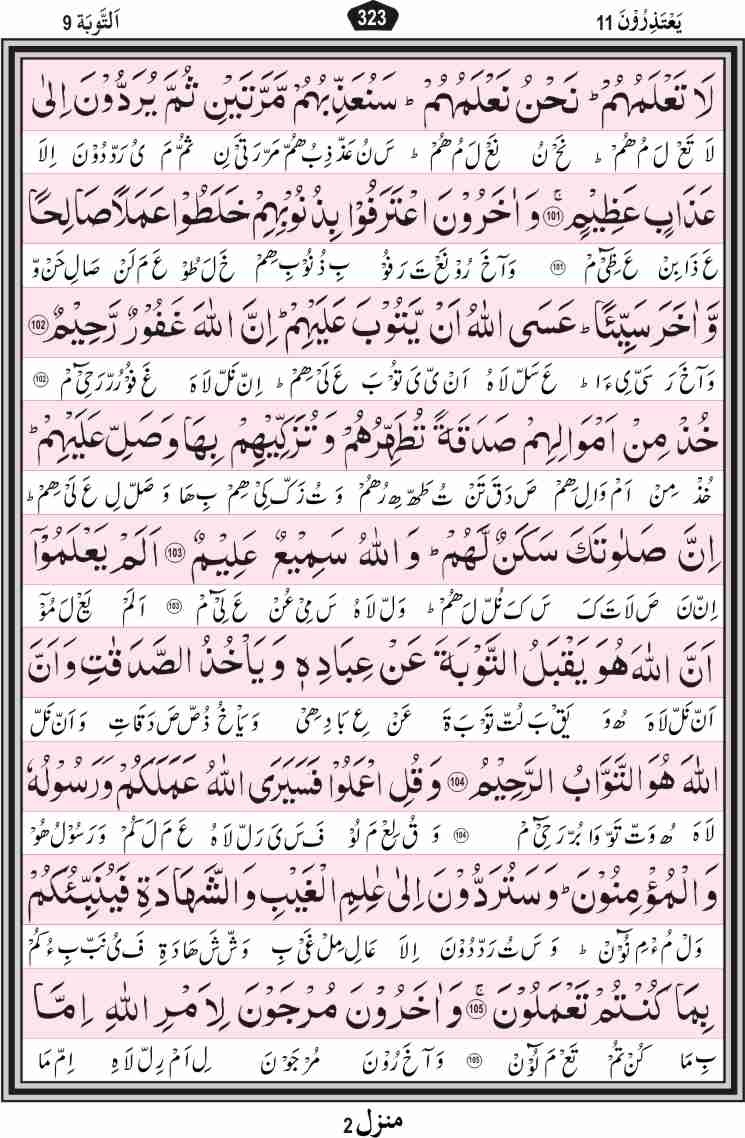 اَلتَّوبَة 9 323 يَعْتَذِرُوْنَ 11
لَا تَعْلَمُهُمْ ؕ نَحْنُ نَعْلَمُهُمْ ؕ سَنُعَذِّبُهُمْ مَّرَّتَيْنِ ثُمَّ يُرَدُّوْنَ اِلٰى
لَا تَعْ لَ مُ هُمْ ؕ نَحْ نُ نَعْ لَ مُ هُمْ ؕ سَ نُ عَذْ ذِ بُ هُمْ مَرْ رَ تَىْ نِ ثُمْ مَ ىُ رَدْ دُوْ نَ اِلَا
عَذَابٍ عَظِيْمٍ ۚ 101 وَ اٰخَرُوْنَ اعْتَرَفُوْا بِذُنُوْبِهِمْ خَلَطُوْا عَمَلًا صَالِحًا
عَ ذَا بِنْ عَ ظِىْٓ مْ 101 وَ آ خَ رُوْ نَعْ تَ رَ فُوْ بِ ذُ نُوْ بِ هِمْ خَ لَ طُوْ عَ مَ لَنْ صَا لِ حَنْ وّ
وَّ اٰخَرَ سَيِّئًا ؕ عَسَى اللّٰهُ اَنْ يَّتُوْبَ عَلَيْهِمْ ؕ اِنَّ اللّٰهَ غَفُوْرٌ رَّحِيْمٌ 102
وَ آ خَ رَ سَىْ ىِ ءَا ؕ عَ سَلْ لَا هُ اَنْ ىْ ىَ تُوْ بَ عَ لَىْ هِمْ ؕ اِنْ نَلْ لَا هَ غَ فُوْ رُرْ رَ حِىْٓ مْ 102
خُذْ مِنْ اَمْوَالِهِمْ صَدَقَةً تُطَهِّرُهُمْ وَ تُزَكِّيْهِمْ بِهَا وَصَلِّ عَلَيْهِمْ ؕ
خُذْ مِنْ اَمْ وَا لِ هِمْ صَ دَ قَ تَنْ تُ طَهْ هِ رُ هُمْ وَ تُ زَكْ كِىْ هِمْ بِ هَا وَ صَلْ لِ عَ لَىْ هِمْ ؕ
اِنَّ صَلٰوتَكَ سَكَنٌ لَّهُمْ ؕ وَ اللّٰهُ سَمِيْعٌ عَلِيْمٌ 103 اَلَمْ يَعْلَمُوْۤا
اِنْ نَ صَ لَا تَ كَ سَ كَ نُلْ لَ هُمْ ؕ وَلْ لَا هُ سَ مِىْ عُنْ عَ لِىْٓ مْ 103 اَ لَمْ يَعْ لَ مُوْٓ
اَنَّ اللّٰهَ هُوَ يَقْبَلُ التَّوْبَةَ عَنْ عِبَادِهٖ وَ يَاْخُذُ الصَّدَقٰتِ وَ اَنَّ
اَنْ نَلْ لَا هَ هُ وَ يَقْ بَ لُتْ تَوْ بَ ةَ عَنْ عِ بَا دِ هِىْ وَ يَاْ خُ ذُصْ صَ دَ قَا تِ وَ اَنْ نَلْ
اللّٰهَ هُوَ التَّوَّابُ الرَّحِيْمُ 104 وَ قُلِ اعْمَلُوْا فَسَيَرَى اللّٰهُ عَمَلَكُمْ وَ رَسُوْلُهٗ
لَا هَ هُ وَتْ تَوْ وَا بُرْ رَ حِىْٓ مْ 104 وَ قُ لِعْ مَ لُوْ فَ سَ ىَ رَلْ لَا هُ عَ مَ لَ كُمْ وَ رَ سُوْ لُ هُوْ
وَ الْمُؤْمِنُوْنَ ؕ وَ سَتُرَدُّوْنَ اِلٰى عٰلِمِ الْغَيْبِ وَ الشَّهَادَةِ فَيُنَبِّئُكُمْ
وَلْ مُ ءْ مِ نُوْٓ نْ ؕ وَ سَ تُ رَدْ دُوْ نَ اِلَا عَا لِ مِلْ غَىْ بِ وَشْ شَ هَا دَ ةِ فَ ىُ نَبْ بِ ءُ كُمْ
بِمَا كُنْتُمْ تَعْمَلُوْنَ ۚ 105 وَ اٰخَرُوْنَ مُرْجَوْنَ لِاَمْرِ اللّٰهِ اِمَّا
بِ مَا كُنْ تُمْ تَعْ مَ لُوْٓ نْ 105 وَ آ خَ رُوْ نَ مُرْ جَوْ نَ لِ اَمْ رِلْ لَا هِ اِمْ مَا
منزل 2